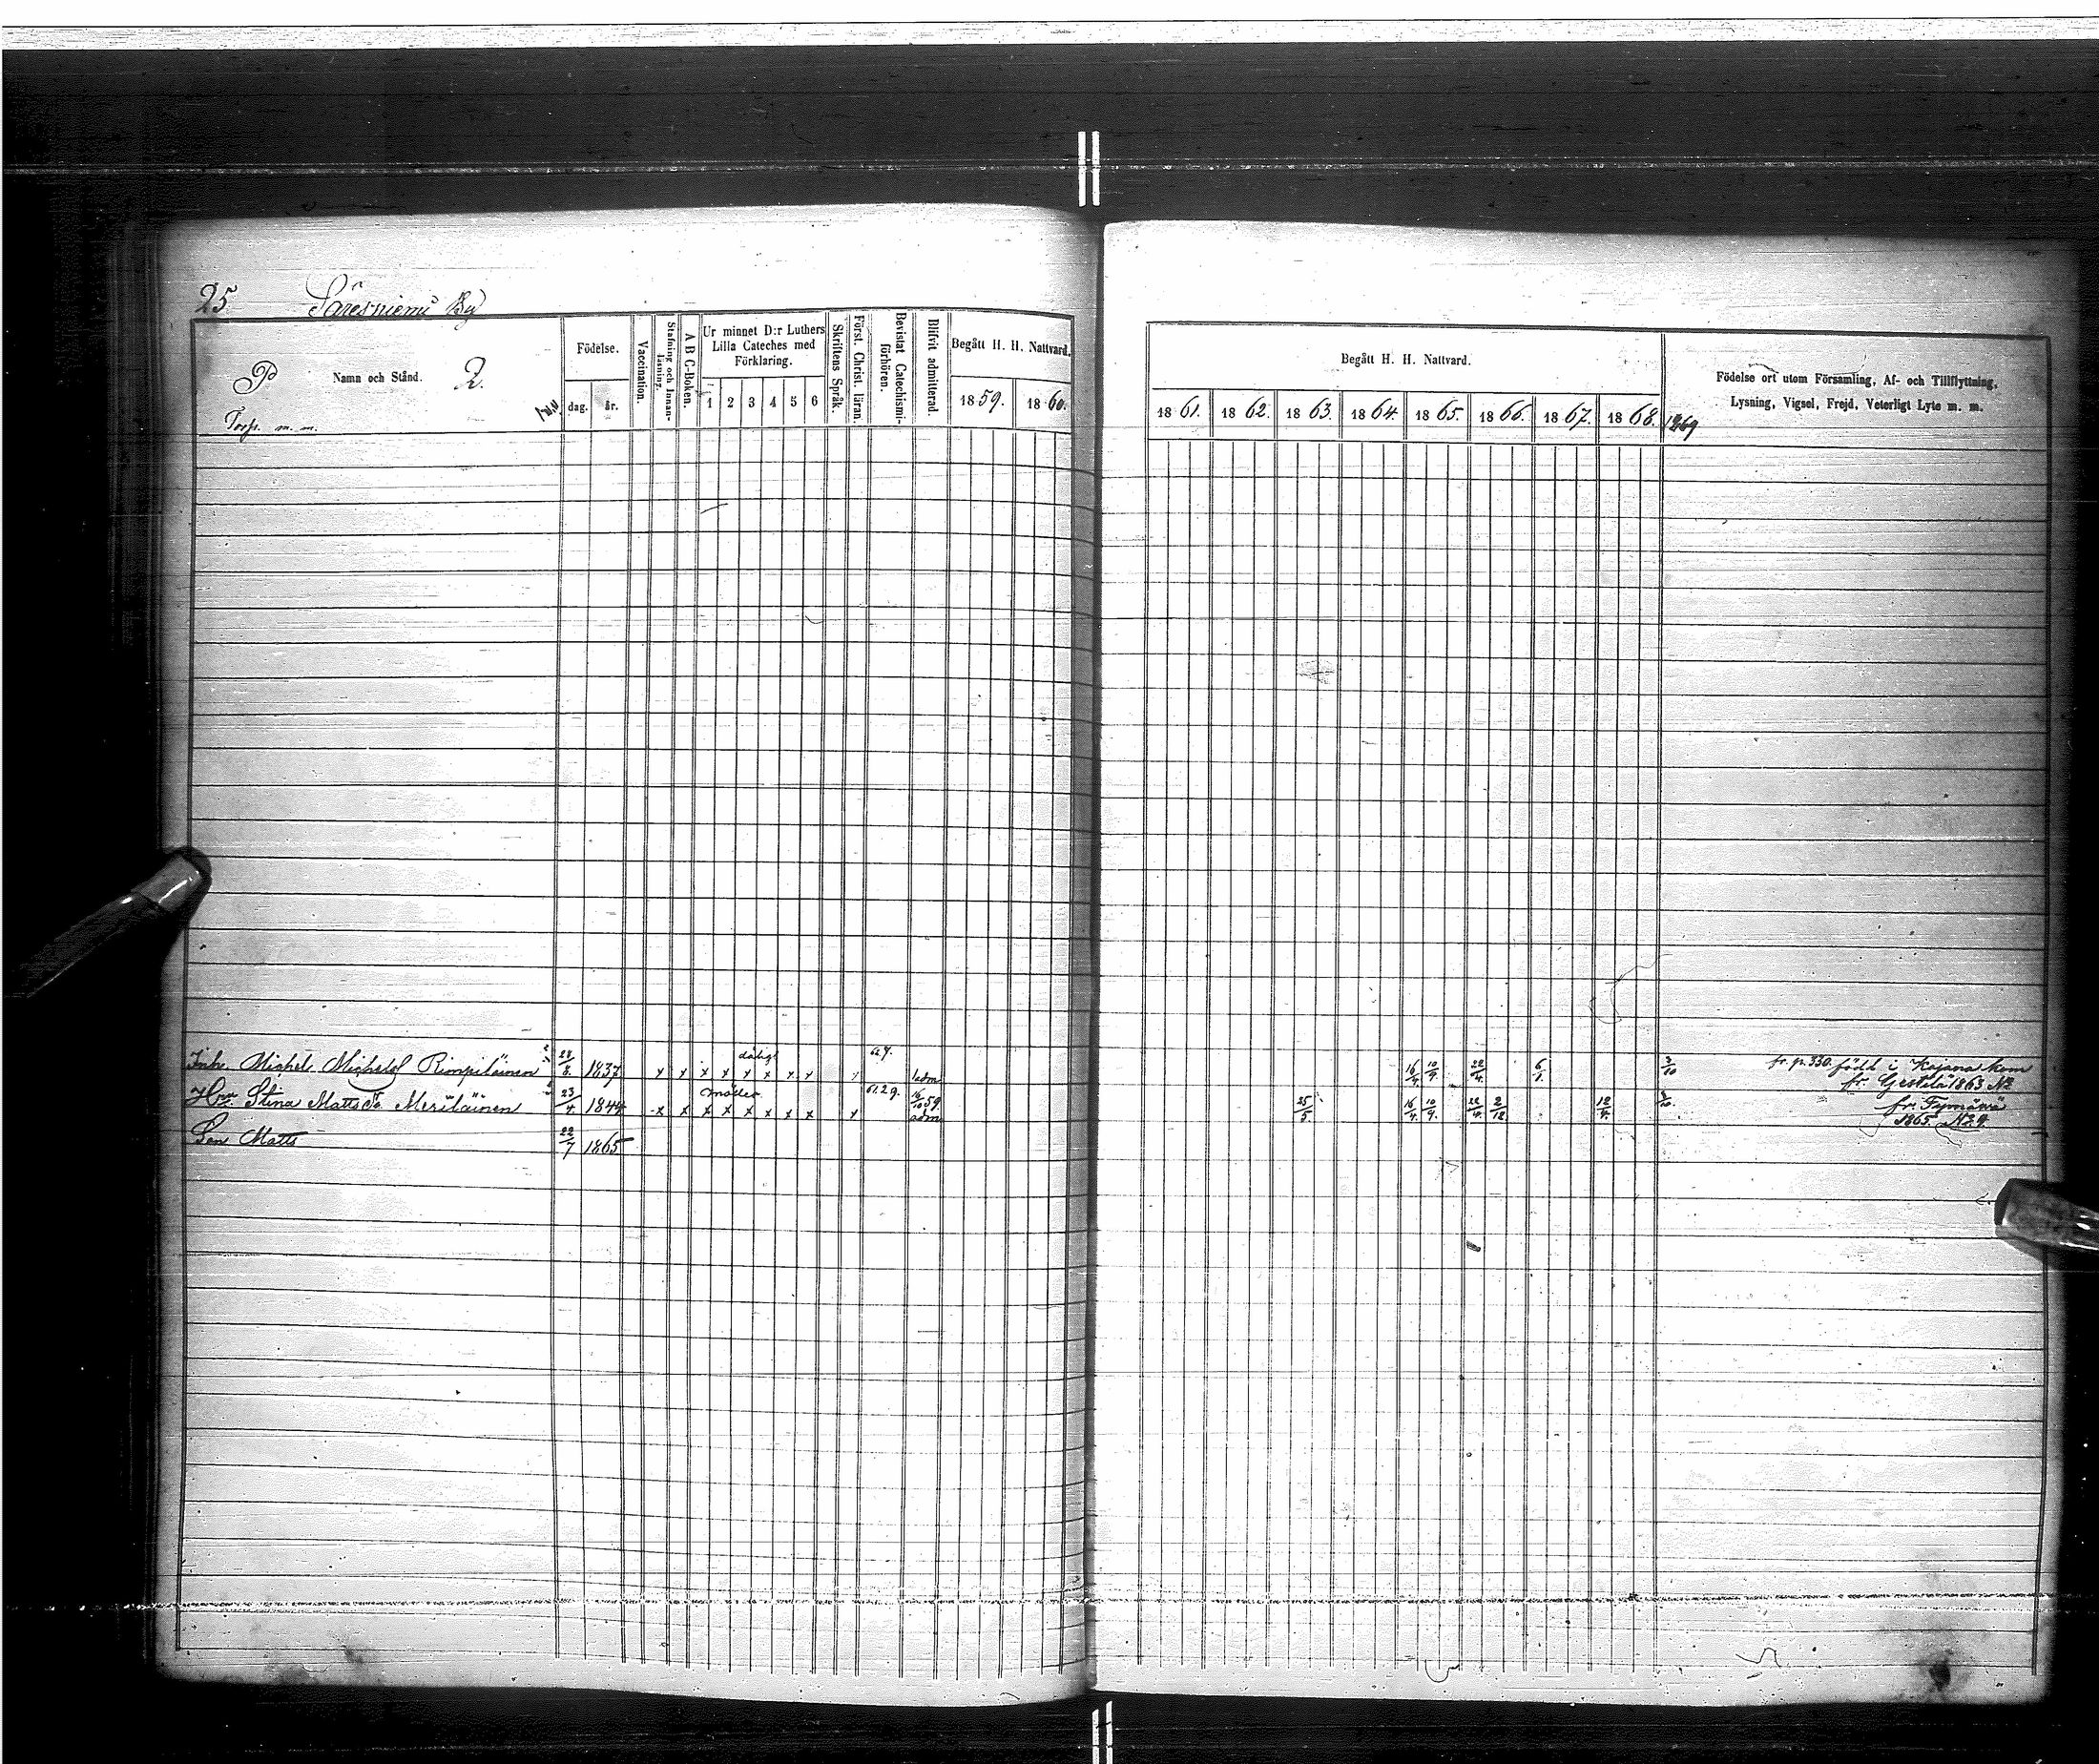 25. Säresniemi By
P Namn och Stånd. 2.
Torp. m. m.
Födelse.
dag. år.
Vaccination.
Stafning och Innanläsning.
A B C-Boken.
Ur minnet D:r Luthers
Lilla Cateches med
Förklaring.
1 2 3 4 5 6
Skriftens Språk.
Först. Christ. läran.
Bevistat Catechismi-
förhören.
Blifvit admitterad.
Begått H. H. Nattvard.
1859. 1860.
Begått H. H. Nattvard.
1861. 1862. 1863. 1864. 1865. 1866. 1867. 1868. 1869
Födelse ort utom Församling, Af- och Tillflyttning,
Lysning, Vigsel, Frejd, Veterligt Lyte m. m.
Inh. Michel Michelsf Rimpiläinen 28/8 1837 x x dåligt x x x x x x adm 16/4 10/9 22/4 6/1 3/10 fr. p. 330. född i Kajana kom
fr. 1863
Hu Stina Mattsd. Meriläinen 23/4 1844 x x x x x x x x x 61.29. 16/10 59 adm 25/5 16/4 10/9 22/4 2/12 12/4 3/10 fr.
1865. No 9.
Son Matts 22/7 1865